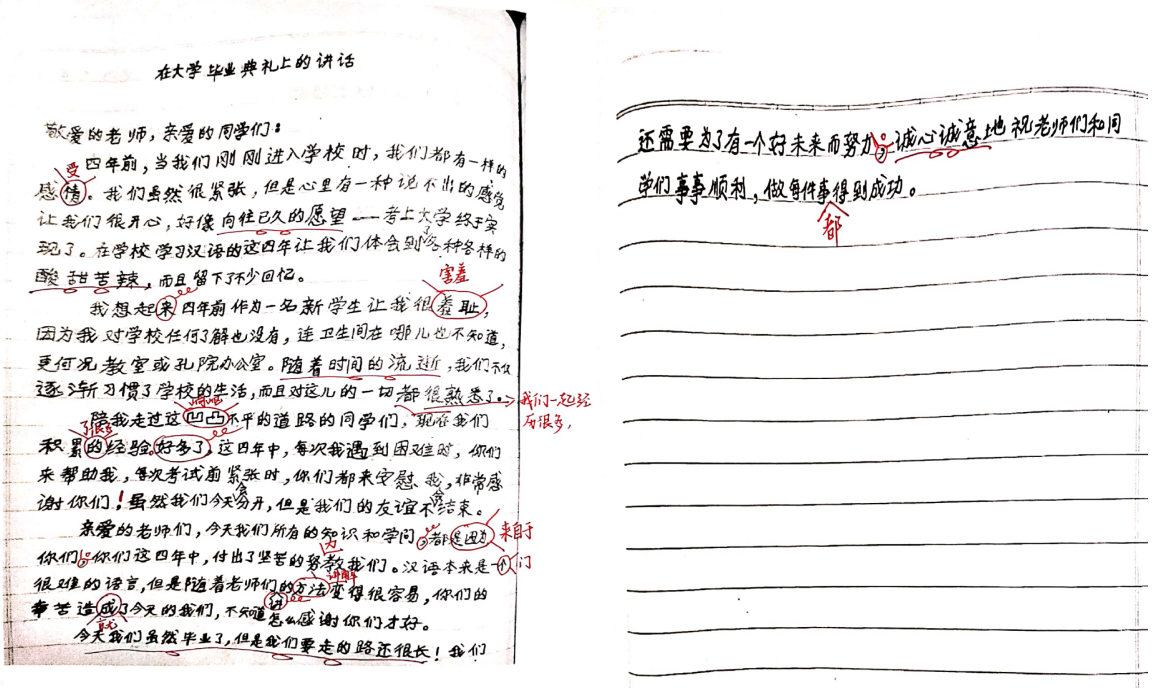 在大学毕业典礼上的讲话
敬爱的老师，亲爱的同学们：
受
四年前，当我们刚刚进入学校时，我们都有一样的
感情。我们虽然很紧张，但是心里有一种说不出的感觉
让我们很开心，好像向往已久的愿望——考上大学终于实
现了。在学校学习汉语的这四年让我们体会到了各种各样的
酸甜苦辣，而且留下了不少回忆。
害羞
我想起来四年前作为一名新学生让我很羞耻，
因为我对学校任何了解也没有，连卫生间在哪儿也不知道，
更何况教室或孔院办公室。随着时间的流逝，我们不仅
逐渐习惯了学校的生活，而且对这儿的一切都很熟悉了。
我们一起经
历很多，
陪我走过这凹凸不平的道路的同学们，现在我们
了很多
积累的经验好多了。这四年中，每次我遇到困难时，你们
来帮助我，每次考试前紧张时，你们都来安慰我，非常感
谢你们！虽然我们今天会分开，但是我们的友谊不会结束。
亲爱的老师们，今天我们所有的知识和学问，都是因为
来自于
你们。你们这四年中，付出了坚苦的努教我们。汉语本来是一个
为
门
很难的语言，但是随着老师们的方法变得很容易，你们的
讲解
辛苦造成了今天的我们，不知道怎么感谢你们才好。
就
进
今天我们虽然毕业了，但是我们要走的路还很长！我们
还需要为了有一个好未来而努力。诚心诚意地祝老师们和同
学们事事顺利，做每件事得到成功。
都